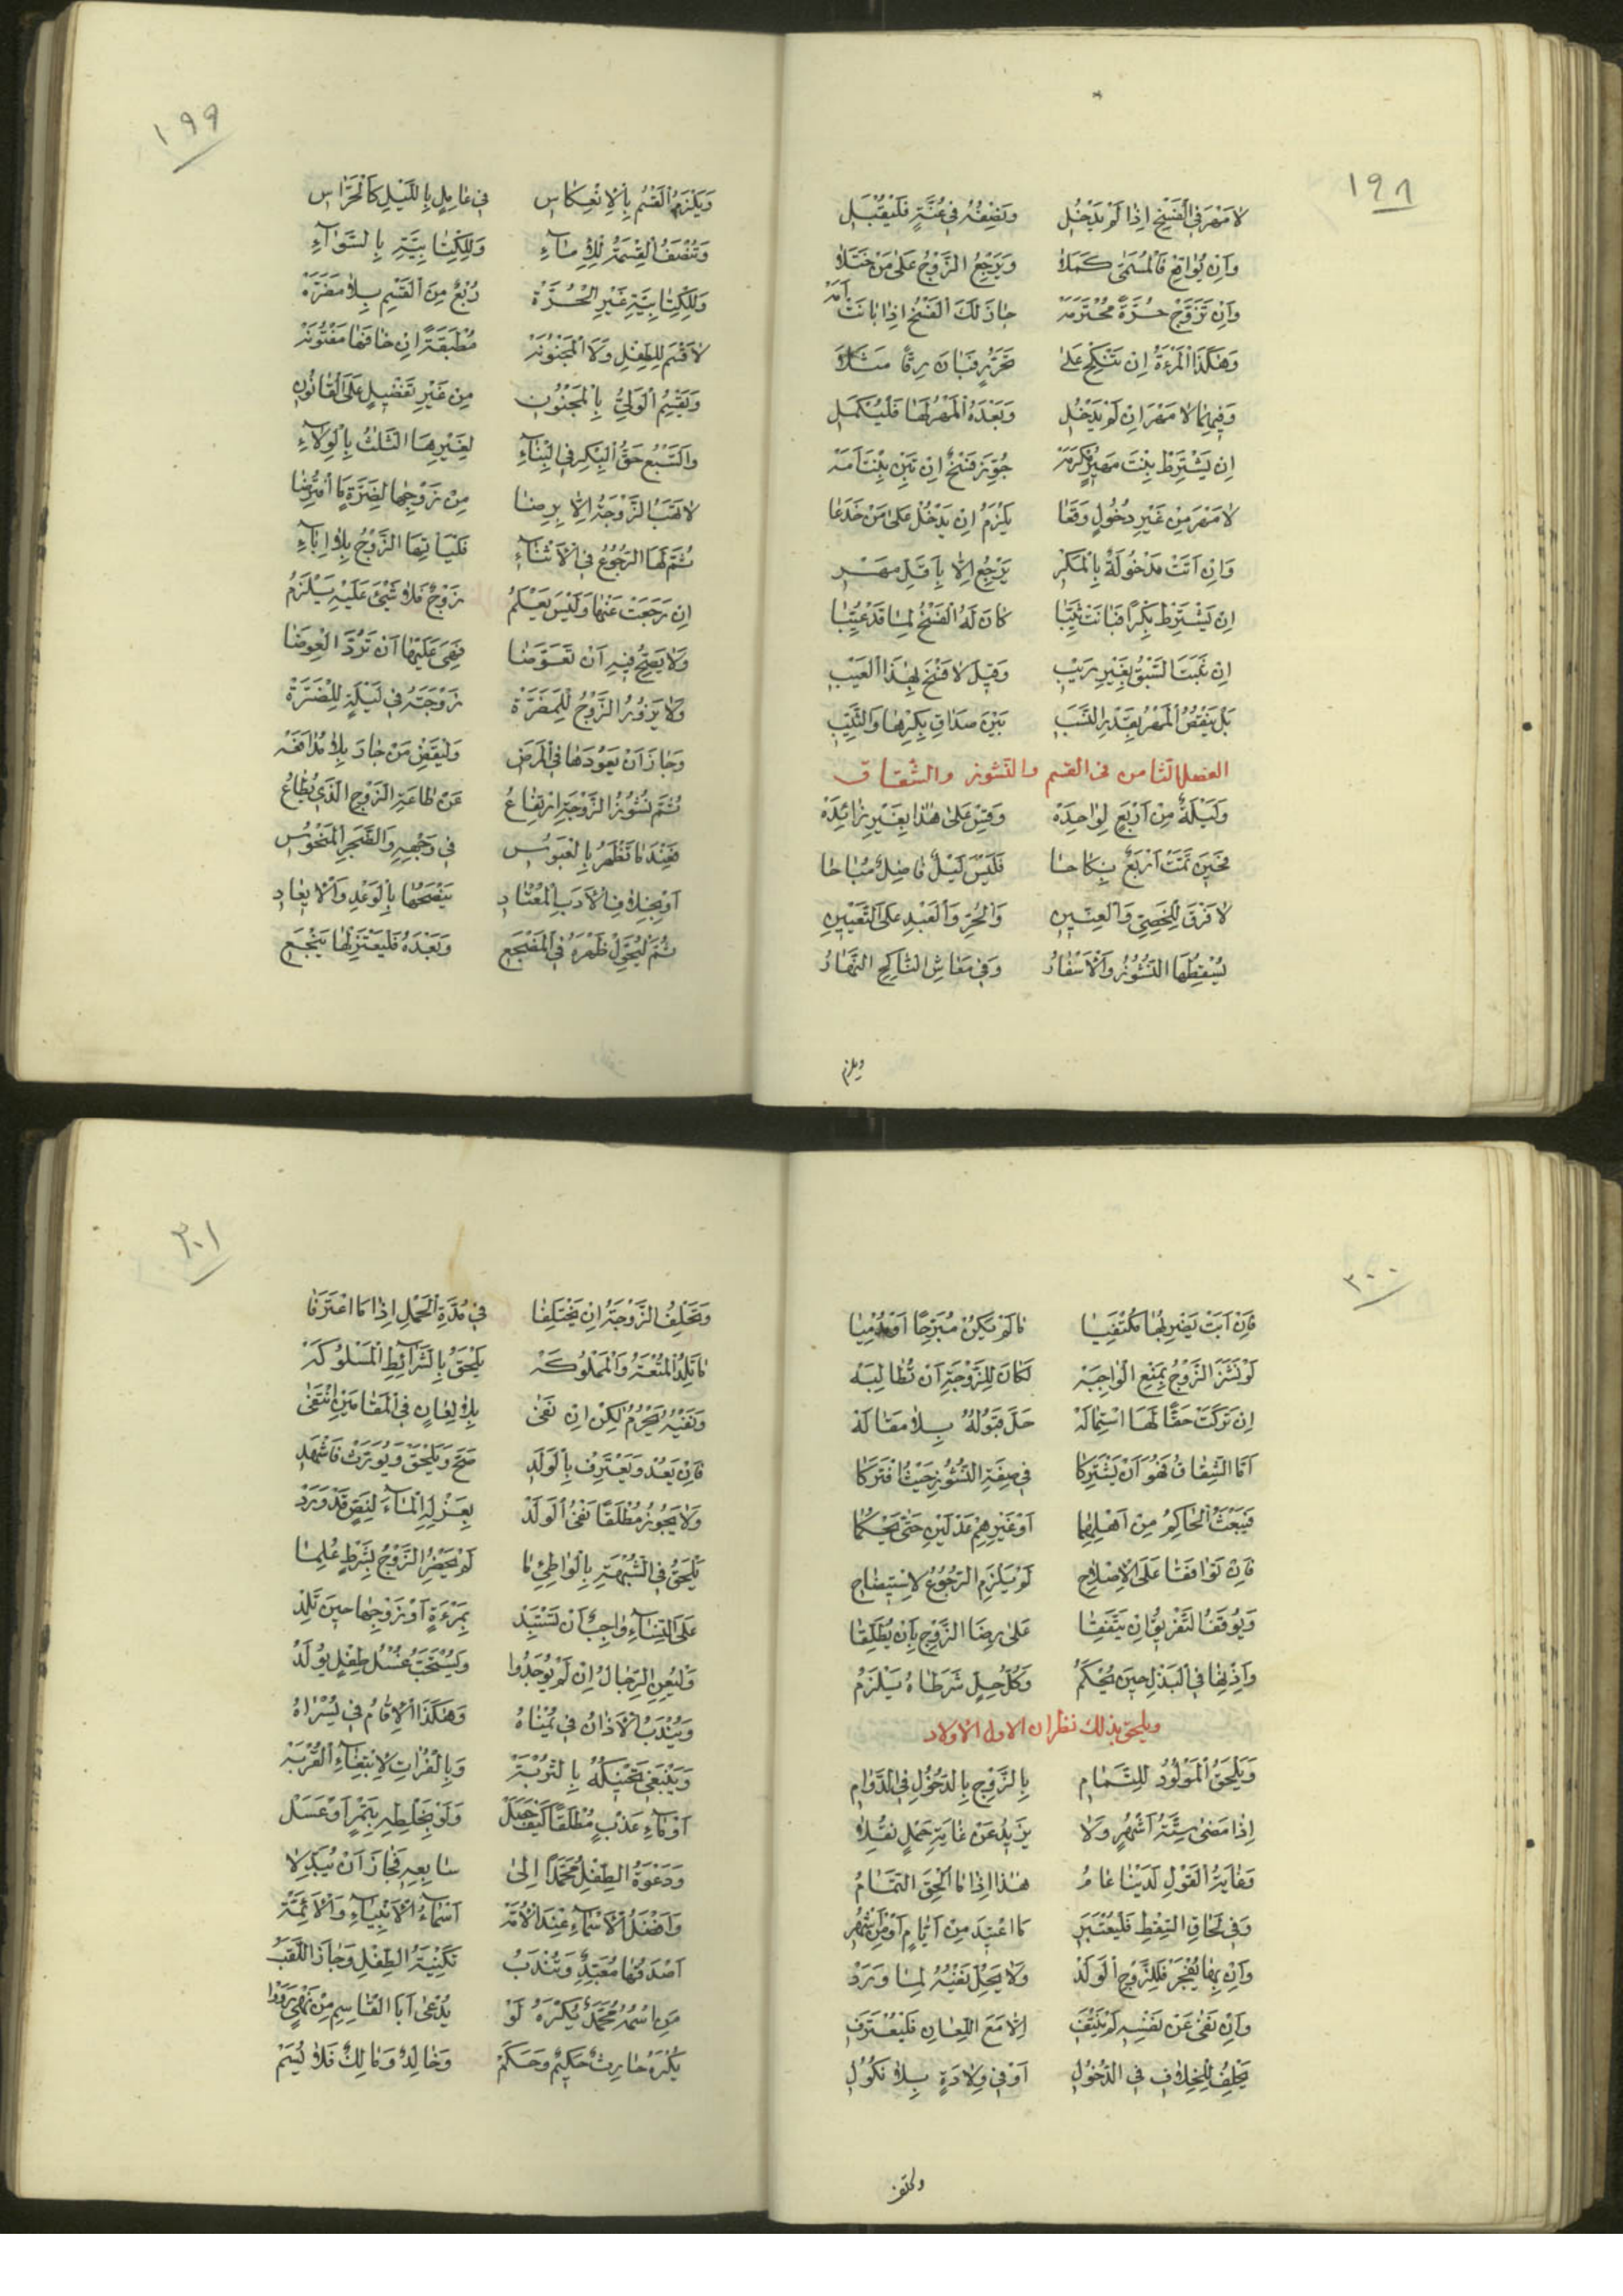 ١٩٨
لا مَهْرَ فِي الْفَسْخِ إِذَا لَمْ يَدْخُلِ وَنِصْفُهُ فِي عُنَّةٍ فَلْيُقْبَلِ
وَإِنْ يُوَاقِعْ فَالْمُسَمَّى كَمَلا وَيَرْجِعُ الزَّوْجُ عَلَى مَنْ خَتَلا
وَإِنْ تَزَوَّجْ حُرَّةً مُحْتَرَمَه جَازَ لَكَ الْفَسْخُ إِذَا بَانَتْ أَمَه
وَهٰكَذَا الْمَرْءَةُ إِنْ تَنْكِحْ عَلَى حُرِّيَّةٍ فَبَانَ رِقًّا مَثَلا
وَفِيهِمَا لا مَهْرَ إِنْ لَمْ يَدْخُلِ وَبَعْدَهُ الْمَهْرُ لَهَا فَلْيُكْمَلِ
إِنْ يَشْتَرِطْ بِنْتَ مَهِيرٍ مُكْرَمَه جُوِّزَ فَسْخٌ إِنْ تَبِنْ بِنْتَ أَمَه
لا مَهْرَ مِنْ غَيْرِ دُخُولٍ وَقَعَا يَلْزَمُ إِنْ يَدْخُلْ عَلَى مَنْ خَدَعَا
وَإِنْ أَتَتْ مَدْخُولَةٌ بِالْمَكْرِ يَرْجِعُ إِلّا بِأَقَلِّ مَهْرِ
إِنْ يَشْتَرِطْ بِكْرًا فَبَانَتْ ثَيِّبَا كَانَ لَهُ الْفَسْخُ لِمَا قَدْ عُيِّبَا
إِنْ ثَبَتَ السَّبْقُ بِغَيْرِ رَيْبِ وَقِيلَ لا فَسْخَ بِهٰذَا الْعَيْبِ
بَلْ يَنْقُصُ الْمَهْرُ بِقَدْرِ النَّسَبِ بَيْنَ صَدَاقِ بِكْرِهَا وَالثَّيِّبِ
الفصل الثامن في القسم والنشوز والشقاق
وَلَيْلَةٌ مِنْ أَرْبَعٍ لِوَاحِدَه وَقِسْ عَلَى هٰذَا بِغَيْرِ زَائِدَه
فَحِينَ تَمَّتْ أَرْبَعٌ نِكَاحَا فَلَيْسَ لَيْلٌ فَاضِلٌ مُبَاحَا
لا فَرْقَ لِلْخَصِيِّ وَالْعِنِّينِ وَالْحُرِّ وَالْعَبْدِ عَلَى التَّعْيِينِ
يُسْقِطُهَا النُّشُوزُ وَالْأَسْفَارُ وَفِي مَعَاشِ النَّاكِحِ النَّهَارُ
ويلزم
١٩٩
وَيَلْزَمُ الْقَسْمُ بِالِانْعِكَاسِ فِي عَامِلٍ بِاللَّيْلِ كَالْحُرَّاسِ
وَتُنْصَفُ الْقِسْمَةُ لِلْإِمَاءِ وَلِلْكِتَابِيَّةِ بِالسَّوَاءِ
وَلِلْكِتَابِيَّةِ غَيْرِ الْحُرَّة رُبْعٌ مِنَ الْقَسْمِ بِلا مَضَرَّه
لا قَسْمَ لِلطِّفْلِ وَلَا الْمَجْنُونَه مُطْبِقَةً إِنْ خَافَهَا مَفْتُونَه
وَيَقْسِمُ الْوَلِيُّ بِالْمَجْنُونِ مِنْ غَيْرِ تَفْضِيلٍ عَلَى الْقَانُونِ
وَالسَّبْعُ حَقُّ الْبِكْرِ فِي الْبِنَاءِ لِغَيْرِهَا الثَّلاثُ بِالْوِلَاءِ
لا تَهَبُ الزَّوْجَةُ إِلّا بِرِضَا مِنْ زَوْجِهَا لِضَرَّةٍ
ثُمَّ لَهَا الرُّجُوعُ فِي الْأَثْنَاءِ فَلْيَأْتِهَا الزَّوْجُ بِلا إِبَاءِ
إِنْ رَجَعَتْ عَنْهَا وَلَيْسَ يَعْلَمُ زَوْجٌ فَلا شَيْئَ عَلَيْهِ يَلْزَمُ
وَلا يَصِحُّ فِيهِ أَنْ تَعَوَّضَا فَهِيَ عَلَيْهَا أَنْ تَرُدَّ الْعِوَضَا
وَلا يَزُورُ الزَّوْجُ لِلْمَضَرَّة زَوْجَتَهُ فِي لَيْلَةٍ لِلضَّرَّة
وَجَازَ أَنْ يَعُودَهَا فِي الْمَرَضِ وَلْيَقْضِ مَنْ جَارَ بِلا مُدَافَعَه
ثُمَّ نُشُوزُ الزَّوْجَةِ ارْتِفَاعُ عَنْ طَاعَةِ الزَّوْجِ الَّذِي يُطَاعُ
فَعِنْدَمَا تَظْهَرُ بِالْعُبُوسِ فِي وَجْهِهِ وَالضَّجَرِ الْمَنْحُوسِ
أَوْ بِخِلافِ الْأَدَبِ الْمُعْتَادِ يَنْصَحُهَا بِالْوَعْدِ وَالْإِيعَادِ
ثُمَّ لْيُحَوِّلْ ظَهْرَهُ فِي الْمَضْجَعِ وَبَعْدَهُ فَلْيَعْتَزِلْهَا يَنْجَعِ
٢٠٠
فَإِنْ أَبَتْ يَضْرِبُهَا مُكْتَفِيَا مَا لَمْ يَكُنْ مُبَرِّحًا أَوْ مُدْمِيَا
لَوْ نَشَزَ الزَّوْجُ بِمَنْعِ الْوَاجِبَه لَكَانَ لِلزَّوْجَةِ أَنْ تُطَالِبَه
إِنْ تَرَكَتْ حَقًّا لَهَا اسْتِمَالَه حَلَّ قَبُولُهُ بِلا مَقَالَه
أَمَّا الشِّقَاقُ فَهُوَ أَنْ يَشْتَرِكَا فِي صِفَةِ النُّشُوزِ حَيْثُ افْتَرَكَا
فَيَبْعَثُ الْحَاكِمُ مِنْ أَهْلِهِمَا أَوْ غَيْرِهِمْ عَدْلَيْنِ حَتَّى يَحْكُمَا
فَإِنْ تَوَافَقَا عَلَى الْإِصْلاحِ لَمْ يَلْزَمِ الرُّجُوعُ لِاسْتِيضَاحِ
وَيُوقَفُ التَّفْرِيقُ إِنْ يَتَّفِقَا عَلَى رِضَا الزَّوْجِ بِأَنْ يُطَلِّقَا
وَإِذْنِهَا فِي الْبَذْلِ حِينَ يُحْكَمُ وَكُلُّ حِلٍّ شَرَطَاهُ يَلْزَمُ
ويلحق بذلك نظران الاول الاولاد
وَيُلْحَقُ الْمَوْلُودُ لِلتَّمَامِ بِالزَّوْجِ بِالدُّخُولِ فِي الدَّوَامِ
إِذَا مَضَى سِتَّةُ أَشْهُرٍ وَلا يَزِيدُ عَنْ غَايَةِ حَمْلٍ نُقِلا
وَغَايَةُ الْقَوْلِ لَدَيْنَا عَامُ هٰذَا إِذَا مَا أُلْحِقَ التَّمَامُ
وَفِي لَحَاقِ السِّقْطِ فَلْيُعْتَبَرِ مَا اعْتِيدَ مِنْ أَيَّامٍ أَوْ مِنْ أَشْهُرِ
وَإِنْ بِهَا يُفْجَرْ فَلِلزَّوْجِ الْوَلَدْ وَلا يَحِلُّ نَفْيُهُ لِمَا وَرَدْ
وَإِنْ نَفَى عَنْ نَفْسِهِ لَمْ يَنْتَفِ إِلّا مَعَ اللِّعَانِ فَلْيَعْتَرِفِ
يَحْلِفُ لِلْخِلافِ فِي الدُّخُولِ أَوْ فِي وِلادَةٍ بِلا نُكُولِ
وتحلف
٢٠١
وَتَحْلِفُ الزَّوْجَةُ إِنْ يَخْتَلِفَا فِي مُدَّةِ الْحَمْلِ إِذَا مَا اعْتَرَفَا
مَا تَلِدُ الْمُتْعَةُ وَالْمَمْلُوكَه يُلْحَقُ بِالشَّرَائِطِ الْمَسْلُوكَه
وَنَفْيُهُ يَحْرُمُ لٰكِنْ إِنْ نَفَى بِلا لِعَانٍ فِي الْمَقَامَيْنِ انْتَفَى
فَإِنْ يَعُدْ وَيَعْتَرِفْ بِالْوَلَدِ صَحَّ وَيُلْحَقْ وَيُوَرَّثْ فَاشْهَدِ
وَلا يَجُوزُ مُطْلَقًا نَفْيُ الْوَلَدْ بِعَزْلِهِ الْمَاءَ لِنَصٍّ قَدْ وَرَدْ
يُلْحَقُ فِي الشُّبْهَةِ بِالْوَاطِئِ مَا لَمْ يَحْضُرِ الزَّوْجُ بِشَرْطٍ عُلِمَا
عَلَى النِّسَاءِ وَاجِبٌ أَنْ تَسْتَبِدْ بِمَرْءَةٍ أَوْ زَوْجِهَا حِينَ تَلِدْ
وَلْيُعِنِ الرِّجَالُ إِنْ لَمْ يُوجَدُوا وَيُسْتَحَبُّ غُسْلُ طِفْلٍ يُولَدُ
وَيُنْدَبُ الْأَذَانُ فِي يُمْنَاهُ وَهٰكَذَا الْإِقَامُ فِي يُسْرَاهُ
وَيَنْبَغِي تَحْنِيكُهُ بِالتُّرْبَة وَبِالْفُرَاتِ لِابْتِغَاءِ الْقُرْبَة
أَوْ مَاءِ عَذْبٍ مُطْلَقًا كَيْفَ حَصَلْ وَلَوْ بِخَلْطِهِ بِتَمْرٍ أَوْ عَسَلْ
وَدَعْوَةُ الطِّفْلِ مُحَمَّدًا إِلَى سَابِعِهِ فَجَازَ أَنْ يُبَدَّلا
وَأَفْضَلُ الْأَسْمَاءِ عِنْدَ الْأُمَّة أَسْمَاءُ الْأَنْبِيَاءِ وَالْأَئِمَّة
أَصْدَقُهَا مُعَبَّدٌ وَتُنْدَبُ تَكْنِيَةُ الطِّفْلِ وَجَازَ اللَّقَبُ
مَنِ اسْمُهُ مُحَمَّدٌ يُكْرَهُ لَوْ يُدْعَى أَبَا الْقَاسِمِ مِنْ نَهْيٍ رَوَوْا
يُكْرَهُ حَارِثٌ حَكِيمٌ وَحَكَمْ وَخَالِدٌ وَمَالِكٌ فَلا يُسَمْ